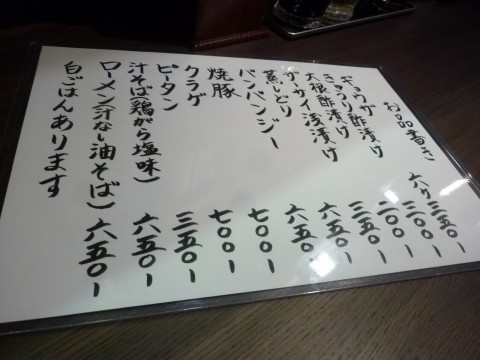 お品書き
ギョウザ 六ケ三五〇ー
きゅうり酢漬け 三〇〇ー
大根酢漬け 二〇〇ー
ザーサイ浅漬け 三五〇ー
蒸しどり 六五〇ー
バンバンジー 六五〇ー
焼豚 七〇〇ー
クラゲ 七〇〇ー
ピータン 三五〇ー
汁そば(鶏がら塩味) 六五〇ー
ローメン(汁なし油そば) 六五〇ー
白ごはんあります